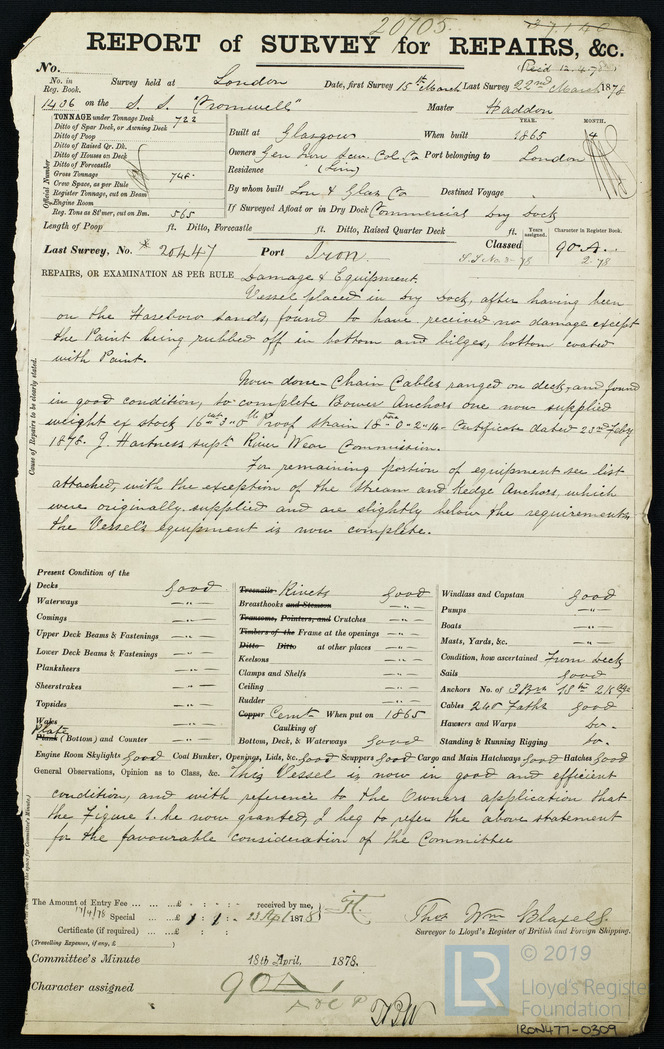 20705.
REPORT of SURVEY for REPAIRS, &c.
No.
No. in Reg. Book. Survey held at London Date, first Survey 15th March Last Survey 22nd March 1878
1406 on the S. S. "Cromwell" Master Haddon
TONNAGE under Tonnage Deck 722
Ditto of Spar Deck, or Awning Deck
Ditto of Poop
Ditto of Raised Qr. Dk.
Ditto of Houses on Deck
Ditto of Forecastle
Gross Tonnage 748.
Crew Space, as per Rule
Register Tonnage, cut on Beam
Engine Room
Reg. Tons as St'mer, cut on Bm. 565
Official Number
YEAR. MONTH.
Built at Glasgow When built 1865 4
Owners Gen Iron Scw. Col. Co Port belonging to London
Residence (Lim)
By whom built Lon & Glas Co Destined Voyage
If Surveyed Afloat or in Dry Dock Commercial Dry Dock
Length of Poop ft. Ditto, Forecastle ft. Ditto, Raised Quarter Deck ft. Years assigned. Character in Register Book.
Last Survey, No. * 20447 Port Iron. Classed 90A.
2.78
REPAIRS, OR EXAMINATION AS PER RULE Damage & Equipment.
Vessel placed in Dry Dock, after having been
on the Hasebro Sands, found to have received no damage except
the Paint being rubbed off in bottom and bilges, bottom coated
with Paint.
Now done - Chain Cables ranged on deck, and found
in good condition, to complete Bower Anchors one now supplied
weight ex stock 16cwt 3" 0lb Proof strain 18tns 0" 2" 14 - Certificate dated 23rd Feby
1878. J. Hartness supt. River Wear Commission.
For remaining portion of equipment see list
attached, with the exception of the Stream and Kedge Anchors, which
were originally supplied and are slightly below the requirements,
the Vessel's equipment is now complete.
Cause of Repairs to be clearly stated.
Present Condition of the
Decks Good
Waterways — " —
Comings — " —
Upper Deck Beams & Fastenings — " —
Lower Deck Beams & Fastenings — " —
Planksheers — " —
Sheerstrakes — " —
Topsides — " —
Wales — " —
Plate
Plank (Bottom) and Counter — " —
Treenails Rivets Good
Breasthooks and Stemson — " —
Transoms, Pointers, and Crutches — " —
Timbers of the Frame at the openings — " —
Ditto Ditto at other places — " —
Keelsons — " —
Clamps and Shelfs — " —
Ceiling — " —
Rudder — " —
Copper Cemt. When put on 1865
Caulking of
Bottom, Deck, & Waterways Good
Windlass and Capstan Good
Pumps — " —
Boats — " —
Masts, Yards, &c. — " —
Condition, how ascertained From Deck
Sails Good
Anchors No. of 3 Brs 1 Stm 2 Kdge
Cables 240 Faths Good
Hawsers and Warps Do.
Standing & Running Rigging Do.
Engine Room Skylights Good Coal Bunker, Openings, Lids, &c. Good Scuppers Good Cargo and Main Hatchways Good Hatches Good
General Observations, Opinion as to Class, &c. This Vessel is now in good and efficient
condition, and with reference to the Owners application that
the Figure 1 be now granted, I beg to refer the above statement
for the favourable consideration of the Committee
The Amount of Entry Fee ... ... £ : : - received by me,
17/4/78 Special ... £ 1 : 1 : - 23 Apl 1878
Certificate (if required) ... £ : :
(Travelling Expenses, if any, £ )
Thos Wm Blaxell.
Surveyor to Lloyd's Register of British and Foreign Shipping.
Committee's Minute 18th April 1878.
Character assigned 90A 1
© 2019
LR
Lloyd's Register
Foundation
IRON477-0309